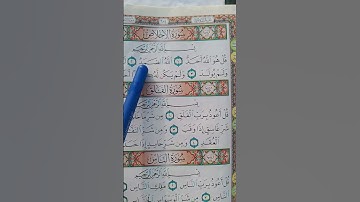 سُورَةُ الإِخْلَاصِ
بِسْمِ اللَّهِ الرَّحْمَٰنِ الرَّحِيمِ
قُلْ هُوَ اللَّهُ أَحَدٌ ١ اللَّهُ الصَّمَدُ ٢
وَلَمْ يُولَدْ ٣ وَلَمْ يَكُن لَّهُ
سُورَةُ الْفَلَقِ
بِسْمِ اللَّهِ الرَّحْمَٰنِ الرَّحِيمِ
قُلْ أَعُوذُ بِرَبِّ الْفَلَقِ ١ مِن شَرِّ مَا خَلَقَ
شَرِّ غَاسِقٍ إِذَا وَقَبَ ٣ وَمِن شَرِّ
الْعُقَدِ ٤ وَمِن شَرِّ حَاسِدٍ إِذَا
سُورَةُ النَّاسِ
بِسْمِ اللَّهِ الرَّحْمَٰنِ الرَّحِيمِ
قُلْ أَعُوذُ بِرَبِّ النَّاسِ ١ مَلِكِ النَّاسِ
مِن شَرِّ الْوَسْوَاسِ